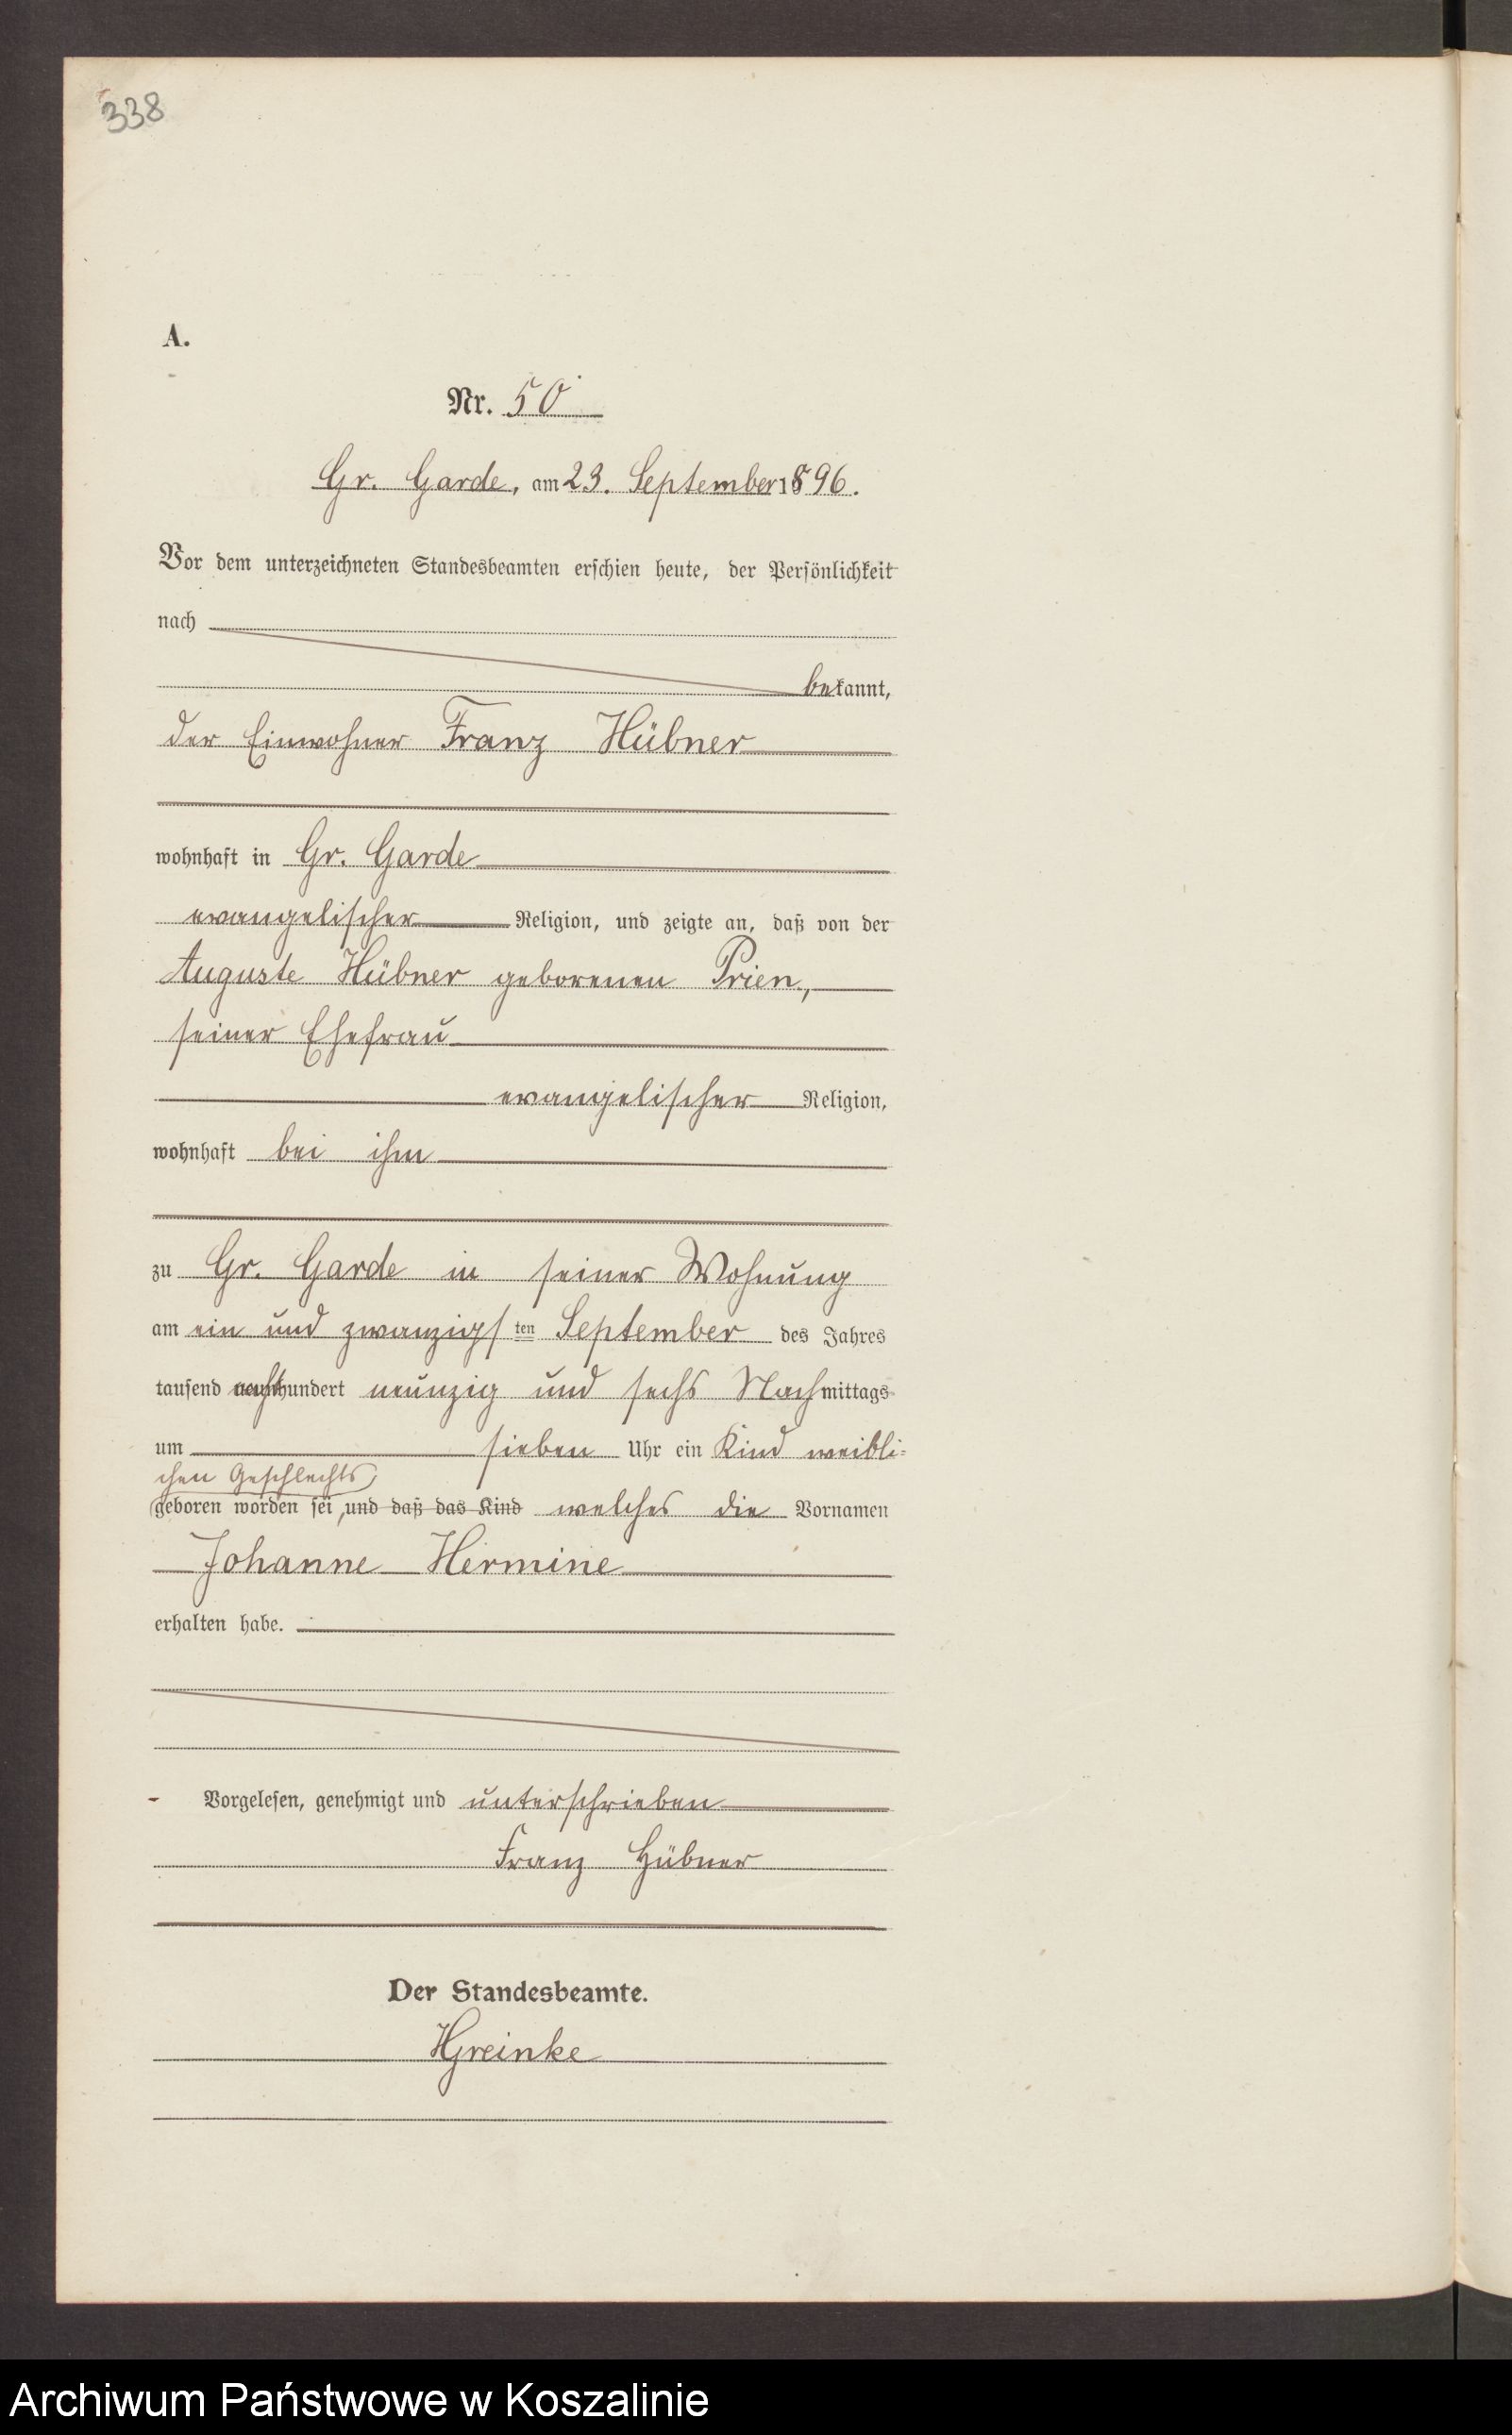 338
A.
Nr. 50
Gr. Garde, am 23. September 1896.
Vor dem unterzeichneten Standesbeamten erschien heute, der Persönlichkeit
nach
bekannt,
der Einwohner Franz Hübner
wohnhaft in Gr. Garde
evangelischer Religion, und zeigte an, daß von der
Auguste Hübner geborenen Prien,
seiner Ehefrau
evangelischer Religion,
wohnhaft bei ihm
zu Gr. Garde in seiner Wohnung
am ein und zwanzigsten September des Jahres
tausend achthundert neunzig und sechs Nachmittags
um sieben Uhr ein Kind weibli-
chen Geschlechts
geboren worden sei, und daß das Kind welches die Vornamen
Johanne Hermine
erhalten habe.
Vorgelesen, genehmigt und unterschrieben
Franz Hübner
Der Standesbeamte.
HGreinke
Archiwum Państwowe w Koszalinie